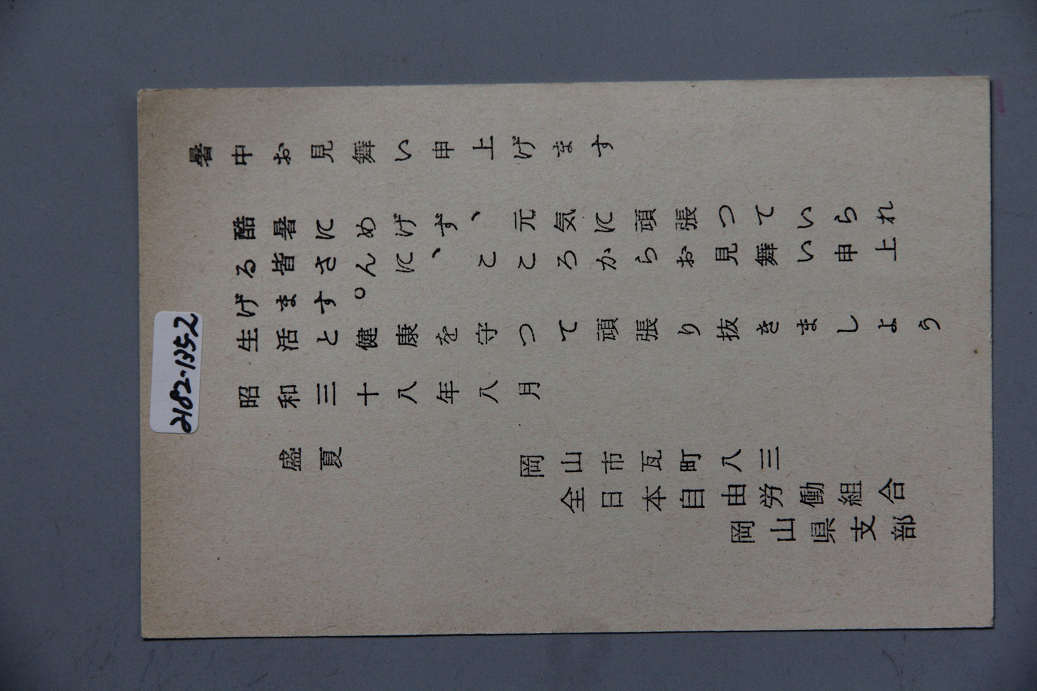 暑中お見舞い申上げます
酷暑にめげず、元気に頑張つていられ
る皆さんに、こころからお見舞い申上
げます。
生活と健康を守つて頑張り抜きましよう
昭和三十八年八月
盛夏
岡山市瓦町八三
全日本自由労働組合
岡山県支部
2182-1352